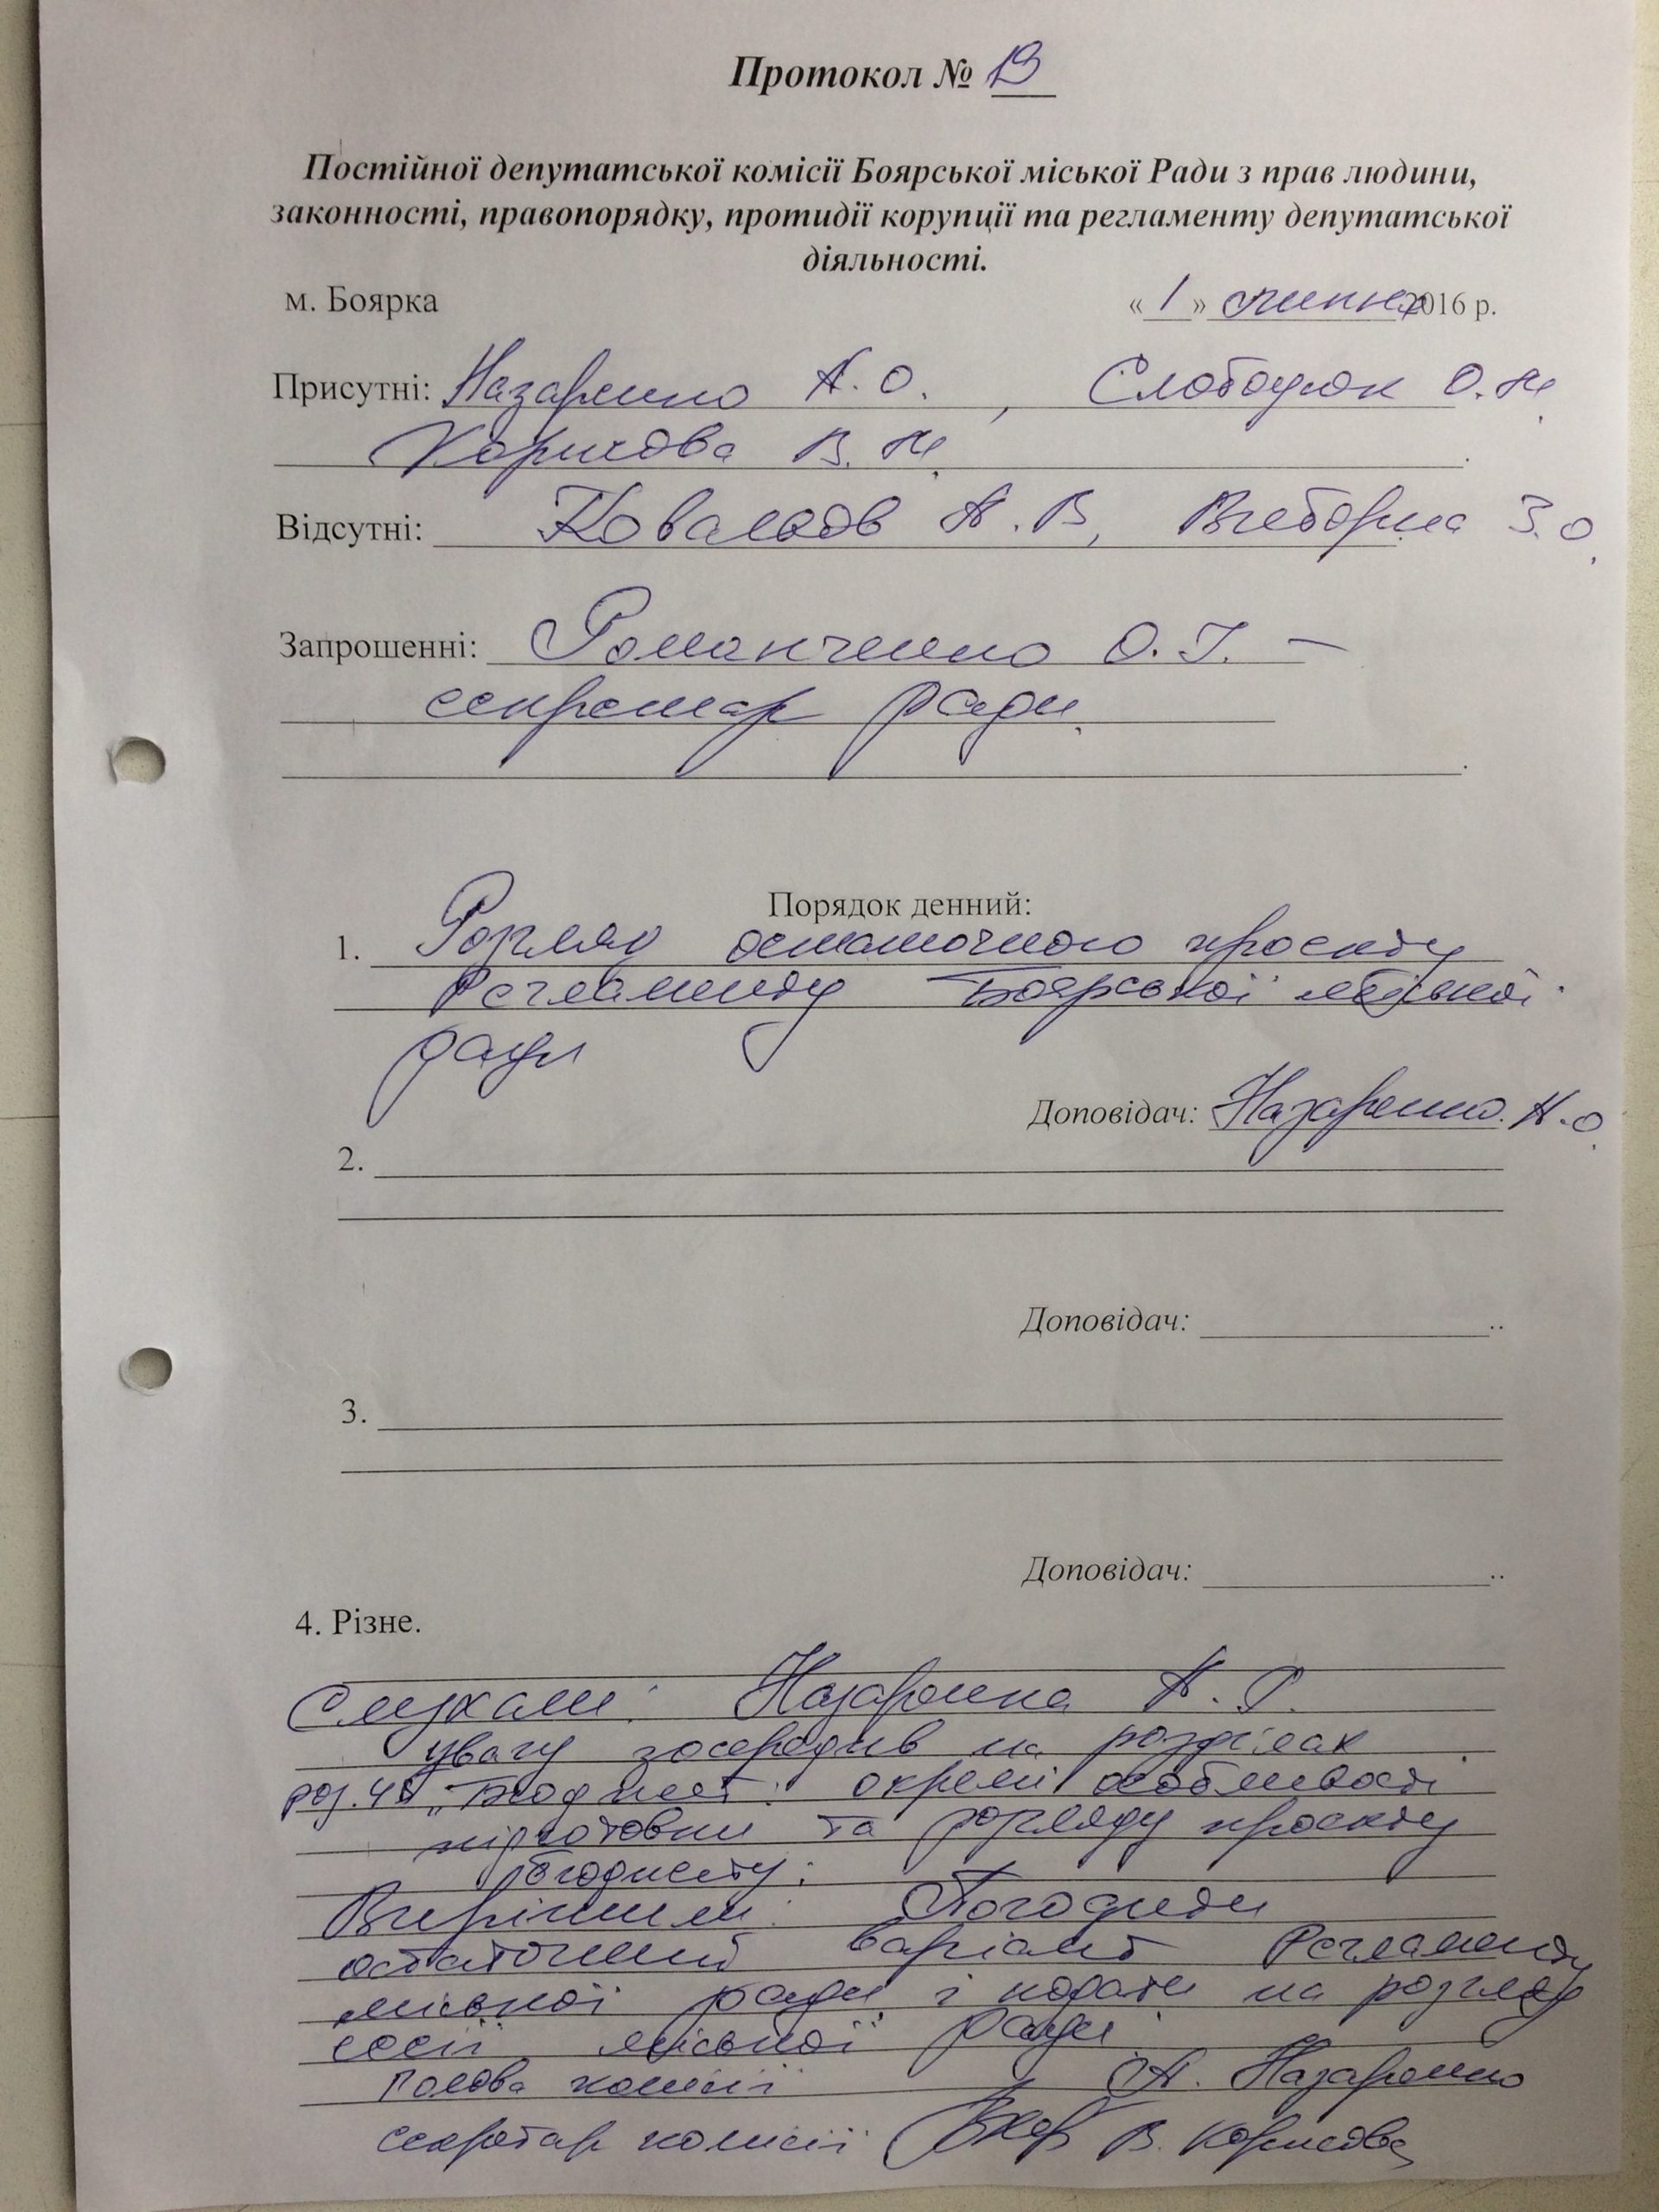 Протокол № 13
Постійної депутатської комісії Боярської міської Ради з прав людини,
законності, правопорядку, протидії корупції та регламенту депутатської
діяльності.
м. Боярка «1» липня 2016 р.
Присутні: Назаренко А. О., Слободюк О. М.
В. М.
Відсутні: Ковальов А. В, Виборна З. О.
Запрошенні: Романченко О. Г. –
секретар ради.
Порядок денний:
1. Розгляд остаточного проекту
Регламенту Боярської міської
ради
Доповідач: Назаренко. А. О.
2.
Доповідач: ..
3.
Доповідач: ..
4. Різне.
Слухали: Назаренка А.
увагу зосередив на розділах
роз. „Бюджет: окремі особливості
підготовки та розгляду проекту
бюджету.
Вирішили: Погодити
остаточний варіант Регламенту
міської ради і подати на розгляд
сесії міської ради
Голова комісії А. Назаренко
секретар комісії В.